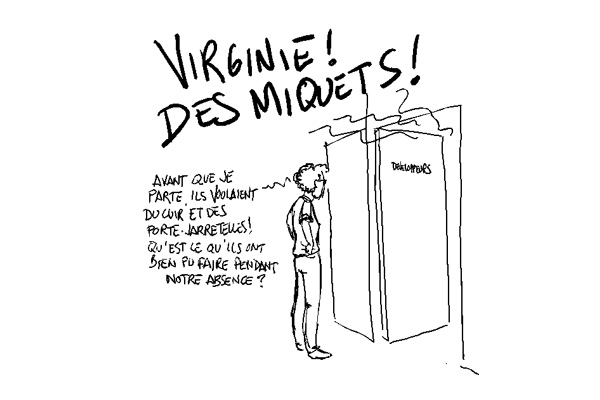 VIRGINIE!
DES MIQUETS!
AVANT QUE JE
PARTE, ILS VOULAIENT
DU CUIR ET DES
PORTE-JARRETELLES!
QU'EST CE QU'ILS ONT
BIEN PU FAIRE PENDANT
NOTRE ABSENCE?
DEVELOPPEURS